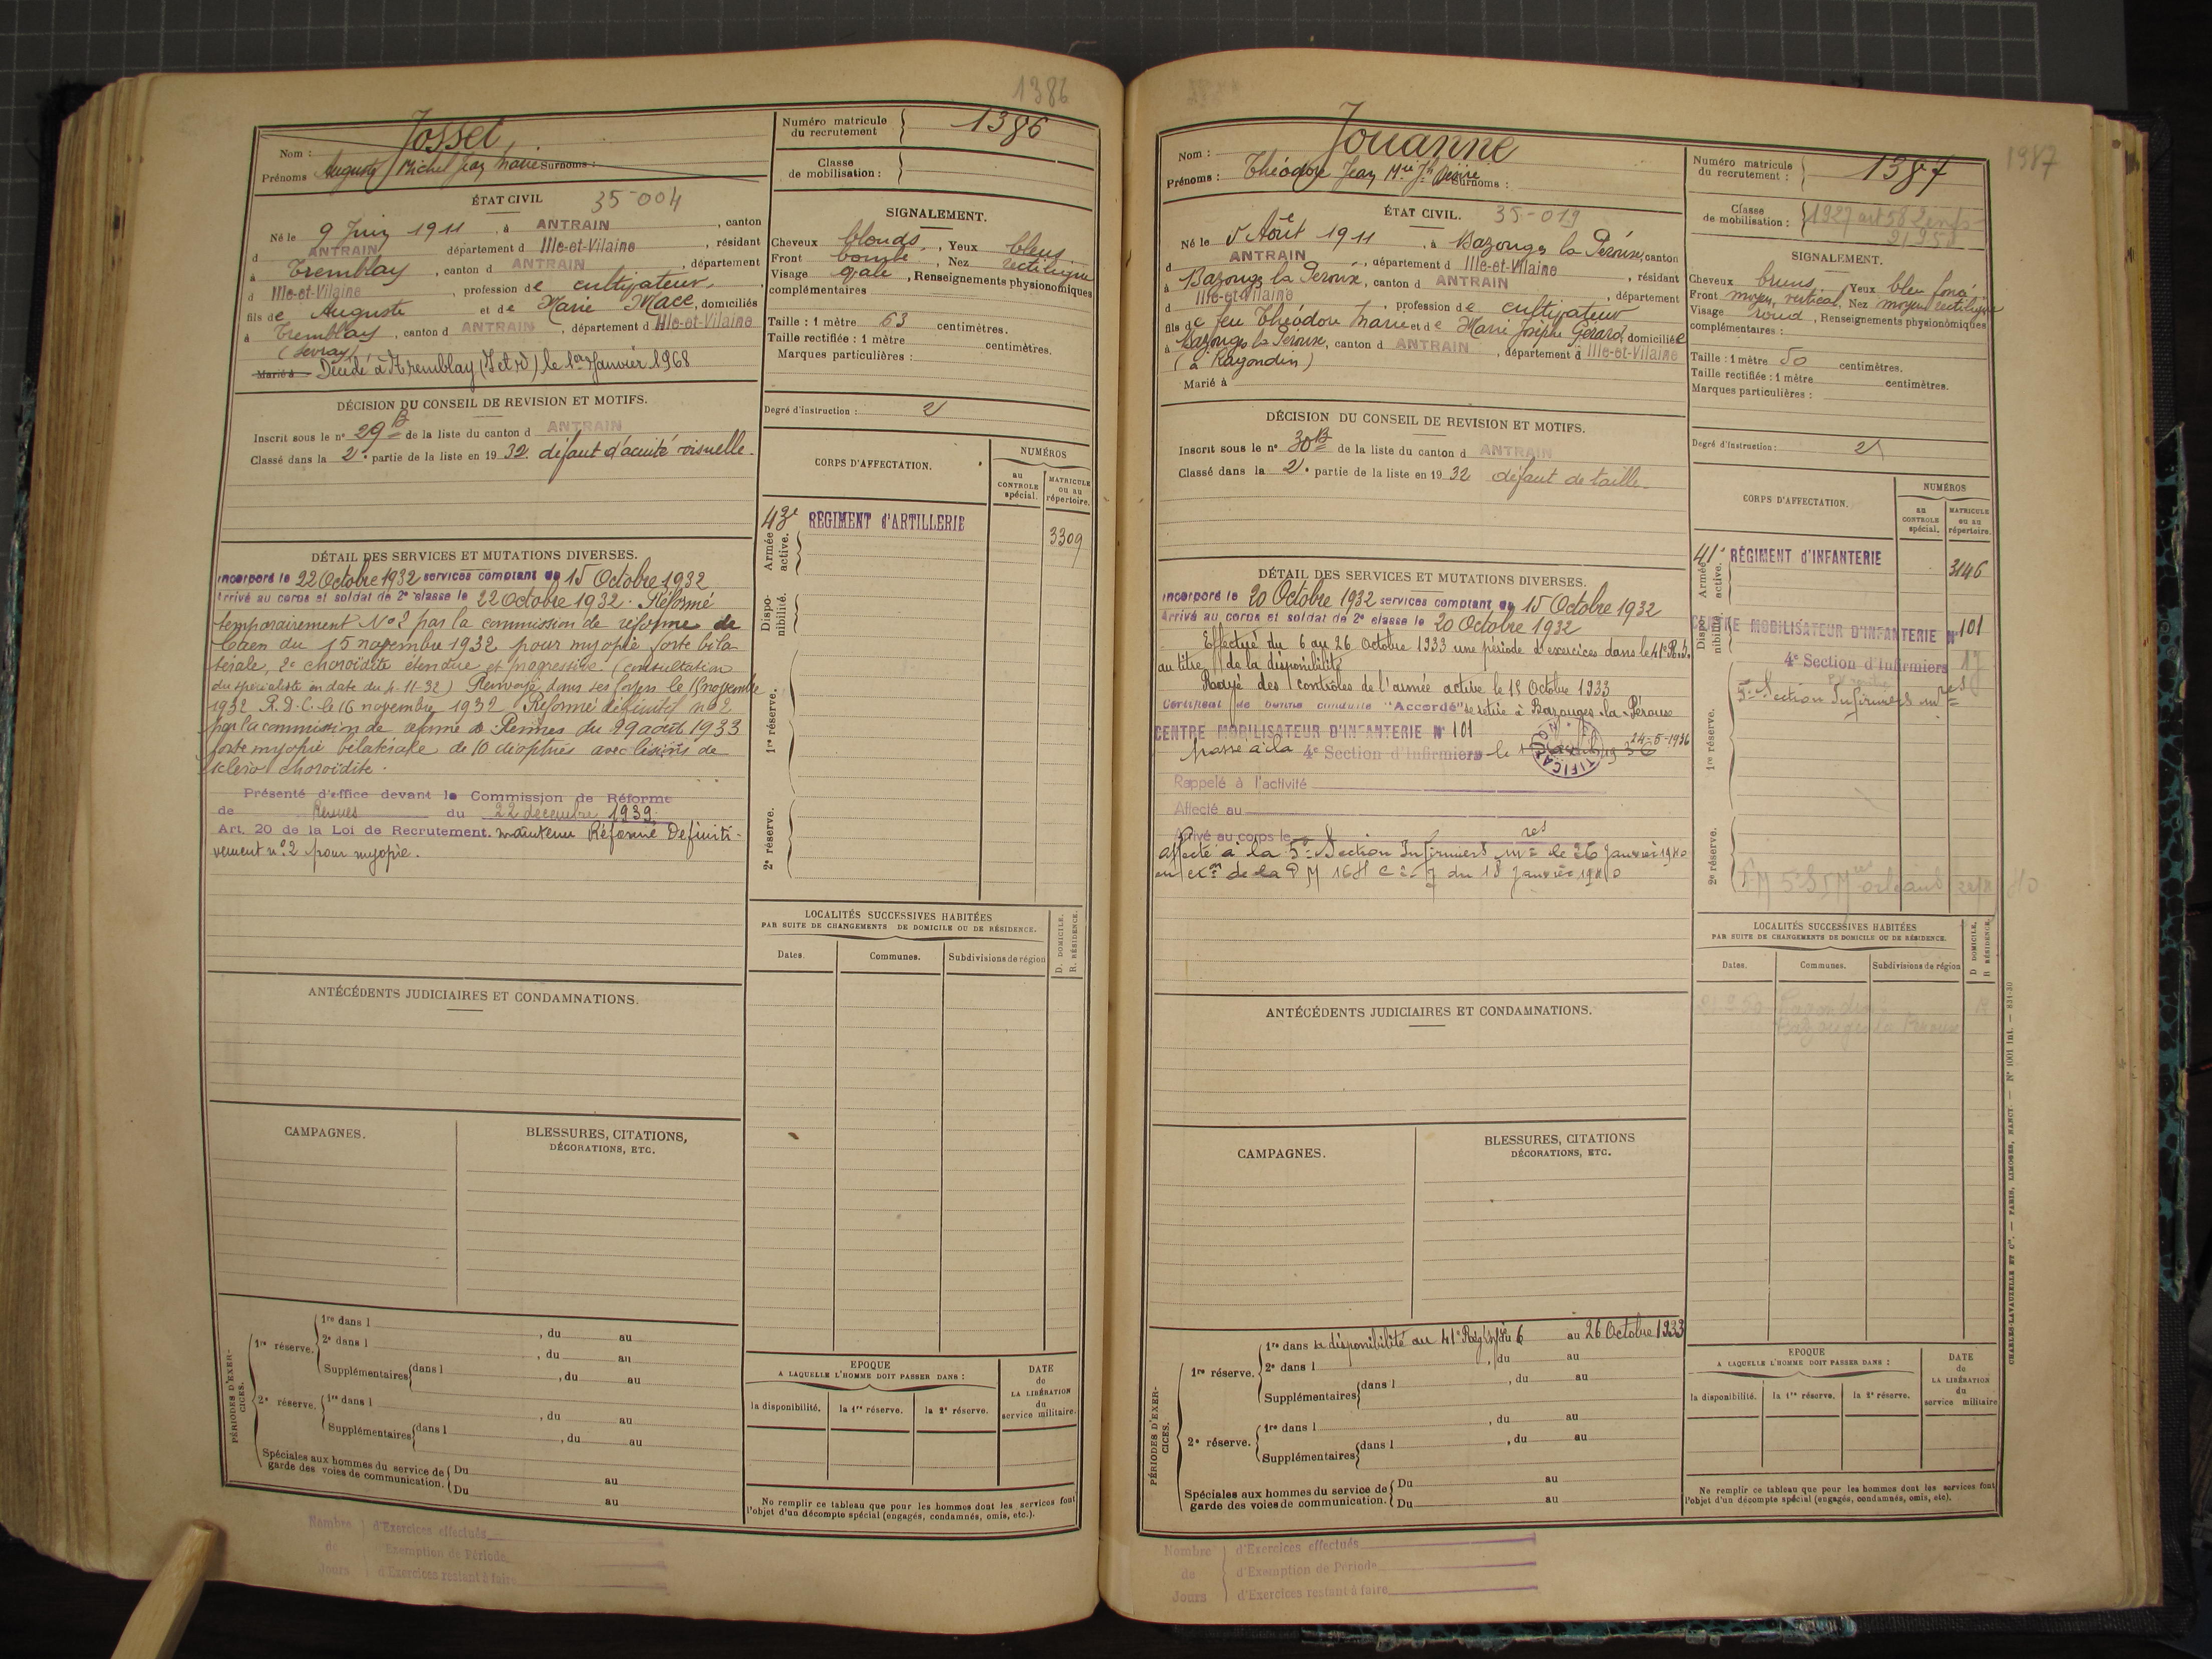 1386
Nom : Josset
Prénoms Auguste Michel Jean Marie Surnoms :
Numéro matricule du recrutement 1386
Classe de mobilisation :
ÉTAT CIVIL 35-004
Né le 9 Juin 1911, à ANTRAIN, canton
d ANTRAIN département d Ille-et-Vilaine, résidant
à Tremblay, canton d ANTRAIN, département
d Ille-et-Vilaine, profession de cultivateur,
fils de Auguste et de Marie Macé, domiciliés
à Tremblay, canton d ANTRAIN, département d Ille-et-Vilaine
Marié à Décédé à Tremblay (I et V) le 1er Janvier 1968
SIGNALEMENT.
Cheveux blonds, Yeux bleus.
Front bombé, Nez rectiligne
Visage ovale, Renseignements physionomiques
complémentaires
Taille : 1 mètre 63 centimètres.
Taille rectifiée : 1 mètre centimètres.
Marques particulières :
Degré d'instruction : 2
DÉCISION DU CONSEIL DE REVISION ET MOTIFS.
Inscrit sous le n° 29 B de la liste du canton d ANTRAIN
Classé dans la 2e partie de la liste en 1932. défaut d'acuité visuelle.
CORPS D'AFFECTATION.
NUMÉROS
au CONTROLE spécial.
MATRICULE ou au répertoire.
Armée active.
43e RÉGIMENT d'ARTILLERIE 3309
Disponibilité.
1re réserve.
2e réserve.
DÉTAIL DES SERVICES ET MUTATIONS DIVERSES.
Incorporé le 22 Octobre 1932 services comptant du 15 Octobre 1932
Arrivé au corps et soldat de 2e classe le 22 Octobre 1932. Réformé
temporairement N°2 par la commission de réforme de
Caen du 15 novembre 1932 pour myopie forte bila-
térale, 2e choroïdite étendue et progressive. (consultation
du spécialiste en date du 4-11-32) Renvoyé dans ses foyers le 15 novembre
1932 R.D.C. le 16 novembre 1932 Réformé définitif n°2
par la commission de réforme de Rennes du 29 août 1933
forte myopie bilatérale de 10 dioptries avec lésions de
scléro choroïdite.
Présenté d'office devant la Commission de Réforme
de Rennes du 22 décembre 1939
Art. 20 de la Loi de Recrutement. maintenu Réformé Définiti-
vement n°2 pour myopie.
LOCALITÉS SUCCESSIVES HABITÉES
PAR SUITE DE CHANGEMENTS DE DOMICILE OU DE RÉSIDENCE.
Dates. Communes. Subdivisions de région
D. DOMICILE.
R. RÉSIDENCE.
ANTÉCÉDENTS JUDICIAIRES ET CONDAMNATIONS.
CAMPAGNES.
BLESSURES, CITATIONS,
DÉCORATIONS, ETC.
PÉRIODES D'EXERCICES.
1re réserve.
1re dans l , du au
2e dans l , du au
Supplémentaires dans l , du au
2e réserve.
1re dans l , du au
Supplémentaires dans l , du au
Spéciales aux hommes du service de garde des voies de communication.
Du au
Du au
EPOQUE
A LAQUELLE L'HOMME DOIT PASSER DANS :
la disponibilité. la 1re réserve. la 2e réserve.
DATE de LA LIBÉRATION du service militaire.
Ne remplir ce tableau que pour les hommes dont les services font
l'objet d'un décompte spécial (engagés, condamnés, omis, etc.).
Nombre de Jours
d'Exercices effectués
d'Exemption de Période
d'Exercices restant à faire
1387
Nom : Jouanne
Prénoms : Théodore Jean Mie Jh Désiré Surnoms :
Numéro matricule du recrutement : 1387
Classe de mobilisation :
ÉTAT CIVIL. 35-019
Né le 5 Août 1911, à Bazouges la Pérouse, canton
d ANTRAIN, département d Ille-et-Vilaine, résidant
à Bazouges la Pérouse, canton d ANTRAIN, département
d Ille-et-Vilaine, profession de cultivateur
fils de feu Théodore Marie et de Marie Josèphe Gérard, domiciliée
à Bazouges la Pérouse, canton d ANTRAIN, département d Ille-et-Vilaine
(à Ragondin)
Marié à
SIGNALEMENT.
Cheveux bruns, Yeux bleu foncé
Front moyen, vertical, Nez moyen rectiligne
Visage rond, Renseignements physionomiques
complémentaires :
Taille : 1 mètre 50 centimètres.
Taille rectifiée : 1 mètre centimètres.
Marques particulières :
Degré d'instruction : 2
DÉCISION DU CONSEIL DE REVISION ET MOTIFS.
Inscrit sous le n° 30 B de la liste du canton d ANTRAIN
Classé dans la 2e partie de la liste en 1932 défaut de taille
CORPS D'AFFECTATION.
NUMÉROS
au CONTROLE spécial.
MATRICULE ou au répertoire.
Armée active.
41e RÉGIMENT d'INFANTERIE 3146
Disponibilité.
CENTRE MOBILISATEUR D'INFANTERIE N° 101
4e Section d'Infirmiers
1re réserve.
5e Section Infirmiers mres
2e réserve.
DÉTAIL DES SERVICES ET MUTATIONS DIVERSES.
Incorporé le 20 Octobre 1932 services comptant du 15 Octobre 1932
Arrivé au corps et soldat de 2e classe le 20 Octobre 1932
Effectué du 6 au 26 Octobre 1933 une période d'exercices dans le 41e R.I.
au titre de la disponibilité
Rayé des contrôles de l'armée active le 15 Octobre 1933
Certificat de bonne conduite "Accordé" se retire à Bazouges-la-Pérouse
CENTRE MOBILISATEUR D'INFANTERIE N° 101
passé à la 4e Section d'Infirmiers le 24-5-1936
Rappelé à l'activité
Affecté au
Arrivé au corps le
affecté à la 5e Section Infirmiers mres le 26 Janvier 1940
en exon de la D M 16H du 18 Janvier 1940
LOCALITÉS SUCCESSIVES HABITÉES
PAR SUITE DE CHANGEMENTS DE DOMICILE OU DE RÉSIDENCE.
Dates. Communes. Subdivisions de région
D DOMICILE.
R RÉSIDENCE.
21 2 50 Ragondin R
Bazouges la Pérouse
ANTÉCÉDENTS JUDICIAIRES ET CONDAMNATIONS.
CAMPAGNES.
BLESSURES, CITATIONS
DÉCORATIONS, ETC.
PÉRIODES D'EXERCICES.
1re réserve.
1re dans la disponibilité au 41e Rég. Inf. du 6 au 26 Octobre 1933
2e dans l , du au
Supplémentaires dans l , du au
2e réserve.
1re dans l , du au
Supplémentaires dans l , du au
Spéciales aux hommes du service de garde des voies de communication.
Du au
Du au
EPOQUE
A LAQUELLE L'HOMME DOIT PASSER DANS :
la disponibilité. la 1re réserve. la 2e réserve.
DATE de LA LIBÉRATION du service militaire
Ne remplir ce tableau que pour les hommes dont les services font
l'objet d'un décompte spécial (engagés, condamnés, omis, etc).
CHARLES-LAVAUZELLE ET Cie. — PARIS, LIMOGES, NANCY — N° 1001 int. — 831-30
Nombre de Jours
d'Exercices effectués
d'Exemption de Période
d'Exercices restant à faire